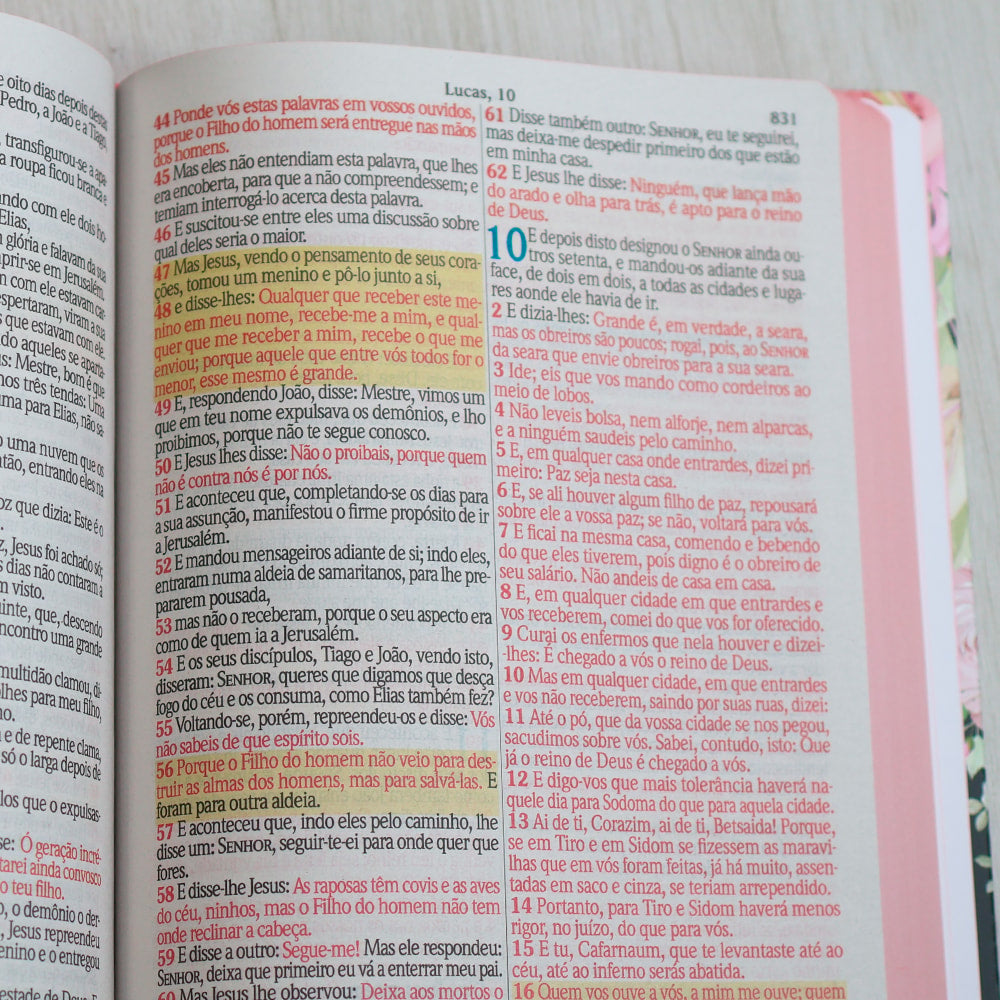 e oito dias depois destas
Pedro, a João e a Tiago,
transfigurou-se a apa-
a roupa ficou branca e
ando com ele dois ho-
Elias,
glória e falavam da sua
prir-se em Jerusalém.
com ele estavam car-
espertaram, viram a sua
s que estavam com ele.
do aqueles se aparta-
us: Mestre, bom é que
nos três tendas: Uma
uma para Elias, não sa-
o uma nuvem que os
ntão, entrando eles na
oz que dizia: Este é o
z, Jesus foi achado só;
s dias não contaram a
m visto.
uinte, que, descendo
encontro uma grande
multidão clamou, di-
olhes para meu filho,
no.
a e de repente clama,
só o larga depois de
los que o expulsas-
se: Ó geração incré-
tarei ainda convosco
o teu filho.
o, o demônio o der-
Jesus repreendeu
menino e o entregou
Lucas, 10
831
44 Ponde vós estas palavras em vossos ouvidos,
porque o Filho do homem será entregue nas mãos
dos homens.
45 Mas eles não entendiam esta palavra, que lhes
era encoberta, para que a não compreendessem; e
temiam interrogá-lo acerca desta palavra.
46 E suscitou-se entre eles uma discussão sobre
qual deles seria o maior.
47 Mas Jesus, vendo o pensamento de seus cora-
ções, tomou um menino e pô-lo junto a si,
48 e disse-lhes: Qualquer que receber este me-
nino em meu nome, recebe-me a mim, e qual-
quer que me receber a mim, recebe o que me
enviou; porque aquele que entre vós todos for o
menor, esse mesmo é grande.
49 E, respondendo João, disse: Mestre, vimos um
que em teu nome expulsava os demônios, e lho
proibimos, porque não te segue conosco.
50 E Jesus lhes disse: Não o proibais, porque quem
não é contra nós é por nós.
51 E aconteceu que, completando-se os dias para
a sua assunção, manifestou o firme propósito de ir
a Jerusalém.
52 E mandou mensageiros adiante de si; indo eles,
entraram numa aldeia de samaritanos, para lhe pre-
pararem pousada,
53 mas não o receberam, porque o seu aspecto era
como de quem ia a Jerusalém.
54 E os seus discípulos, Tiago e João, vendo isto,
disseram: SENHOR, queres que digamos que desça
fogo do céu e os consuma, como Elias também fez?
55 Voltando-se, porém, repreendeu-os e disse: Vós
não sabeis de que espírito sois.
56 Porque o Filho do homem não veio para des-
truir as almas dos homens, mas para salvá-las. E
foram para outra aldeia.
57 E aconteceu que, indo eles pelo caminho, lhe
disse um: SENHOR, seguir-te-ei para onde quer que
fores.
58 E disse-lhe Jesus: As raposas têm covis e as aves
do céu, ninhos, mas o Filho do homem não tem
onde reclinar a cabeça.
59 E disse a outro: Segue-me! Mas ele respondeu:
SENHOR, deixa que primeiro eu vá a enterrar meu pai.
60 Mas Jesus lhe observou: Deixa aos mortos o
61 Disse também outro: SENHOR, eu te seguirei,
mas deixa-me despedir primeiro dos que estão
em minha casa.
62 E Jesus lhe disse: Ninguém, que lança mão
do arado e olha para trás, é apto para o reino
de Deus.
10 E depois disto designou o SENHOR ainda ou-
tros setenta, e mandou-os adiante da sua
face, de dois em dois, a todas as cidades e luga-
res aonde ele havia de ir.
2 E dizia-lhes: Grande é, em verdade, a seara,
mas os obreiros são poucos; rogai, pois, ao SENHOR
da seara que envie obreiros para a sua seara.
3 Ide; eis que vos mando como cordeiros ao
meio de lobos.
4 Não leveis bolsa, nem alforje, nem alparcas,
e a ninguém saudeis pelo caminho.
5 E, em qualquer casa onde entrardes, dizei pri-
meiro: Paz seja nesta casa.
6 E, se ali houver algum filho de paz, repousará
sobre ele a vossa paz; se não, voltará para vós.
7 E ficai na mesma casa, comendo e bebendo
do que eles tiverem, pois digno é o obreiro de
seu salário. Não andeis de casa em casa.
8 E, em qualquer cidade em que entrardes e
vos receberem, comei do que vos for oferecido.
9 Curai os enfermos que nela houver e dizei-
-lhes: É chegado a vós o reino de Deus.
10 Mas em qualquer cidade, em que entrardes
e vos não receberem, saindo por suas ruas, dizei:
11 Até o pó, que da vossa cidade se nos pegou,
sacudimos sobre vós. Sabei, contudo, isto: Que
já o reino de Deus é chegado a vós.
12 E digo-vos que mais tolerância haverá na-
quele dia para Sodoma do que para aquela cidade.
13 Ai de ti, Corazim, ai de ti, Betsaida! Porque,
se em Tiro e em Sidom se fizessem as maravi-
lhas que em vós foram feitas, já há muito, assen-
tadas em saco e cinza, se teriam arrependido.
14 Portanto, para Tiro e Sidom haverá menos
rigor, no juízo, do que para vós.
15 E tu, Cafarnaum, que te levantaste até ao
céu, até ao inferno serás abatida.
16 Quem vos ouve a vós, a mim me ouve; quem